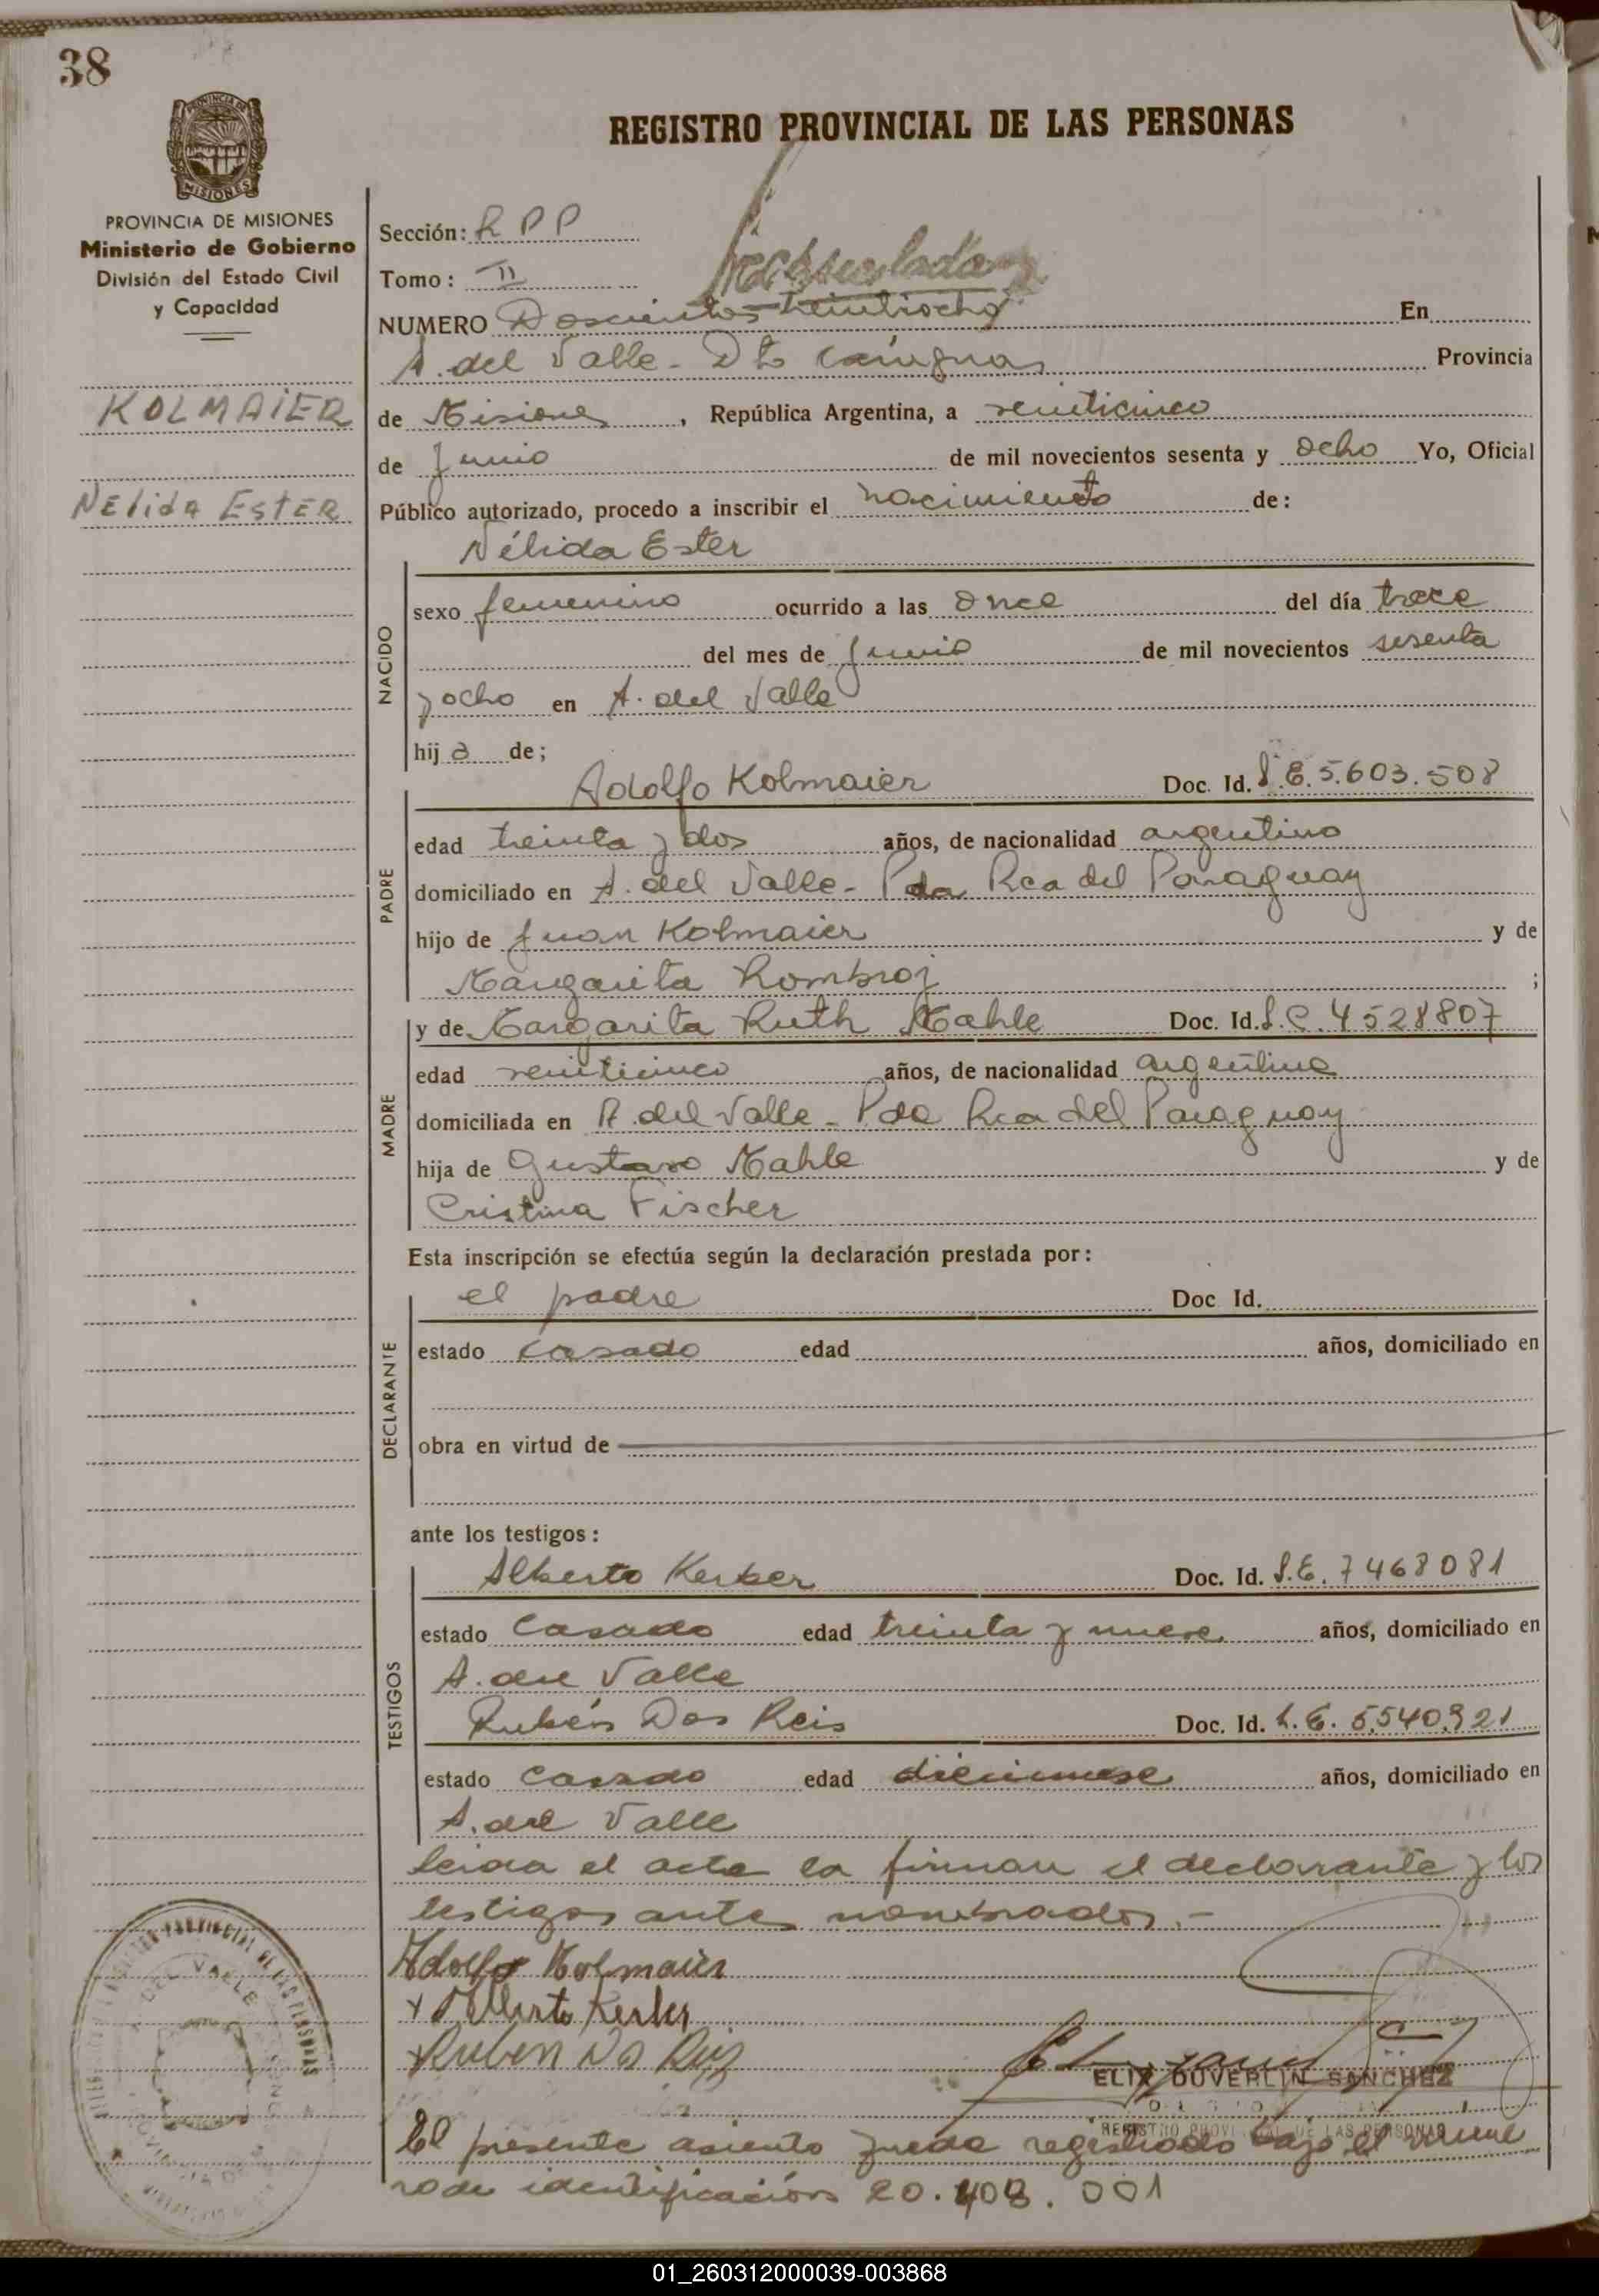 38
REGISTRO PROVINCIAL DE LAS PERSONAS
PROVINCIA DE MISIONES
Ministerio de Gobierno
División del Estado Civil
y Capacidad
KOLMAIER
NELIDA ESTER
Sección: R P P
Tomo: II
NUMERO Doscientos Treintiocho En
A. del Valle - Dto Cainguas Provincia
de Misiones, República Argentina, a veinticinco
de Junio de mil novecientos sesenta y ocho Yo, Oficial
Público autorizado, procedo a inscribir el nacimiento de:
Nélida Ester
NACIDO
sexo femenino ocurrido a las once del día trece
del mes de Junio de mil novecientos sesenta
y ocho en A. del Valle
hija de;
Adolfo Kolmaier Doc. Id. L.E. 5.603.508
PADRE
edad treinta y dos años, de nacionalidad argentino
domiciliado en A. del Valle - Pda Rca del Paraguay
hijo de Juan Kolmaier y de
Margarita Rombroj ;
y de Margarita Ruth Mahle Doc. Id. L.C. 4528807
MADRE
edad veinticinco años, de nacionalidad argentina
domiciliada en A. del Valle - Pda Rca del Paraguay
hija de Gustavo Mahle y de
Cristina Fischer
Esta inscripción se efectúa según la declaración prestada por:
el padre Doc Id.
DECLARANTE
estado casado edad años, domiciliado en
obra en virtud de
ante los testigos:
Alberto Kerber Doc. Id. L.E. 7468081
TESTIGOS
estado Casado edad treinta y nueve años, domiciliado en
A. del Valle
Rubén Dos Reis Doc. Id. L.E. 5.540.921
estado casado edad diecinueve años, domiciliado en
A. del Valle
leida el acta la firman el declarante y los
testigos antes nombrados.-
Adolfo Kolmaier
x Alberto Kerber
x Ruben Do Reis
ELIX DUVERLIN SANCHEZ
REGISTRO PROVINCIAL DE LAS PERSONAS
El presente asiento queda registrado bajo el nume
ro de identificación 20.408.001
01_260312000039-003868